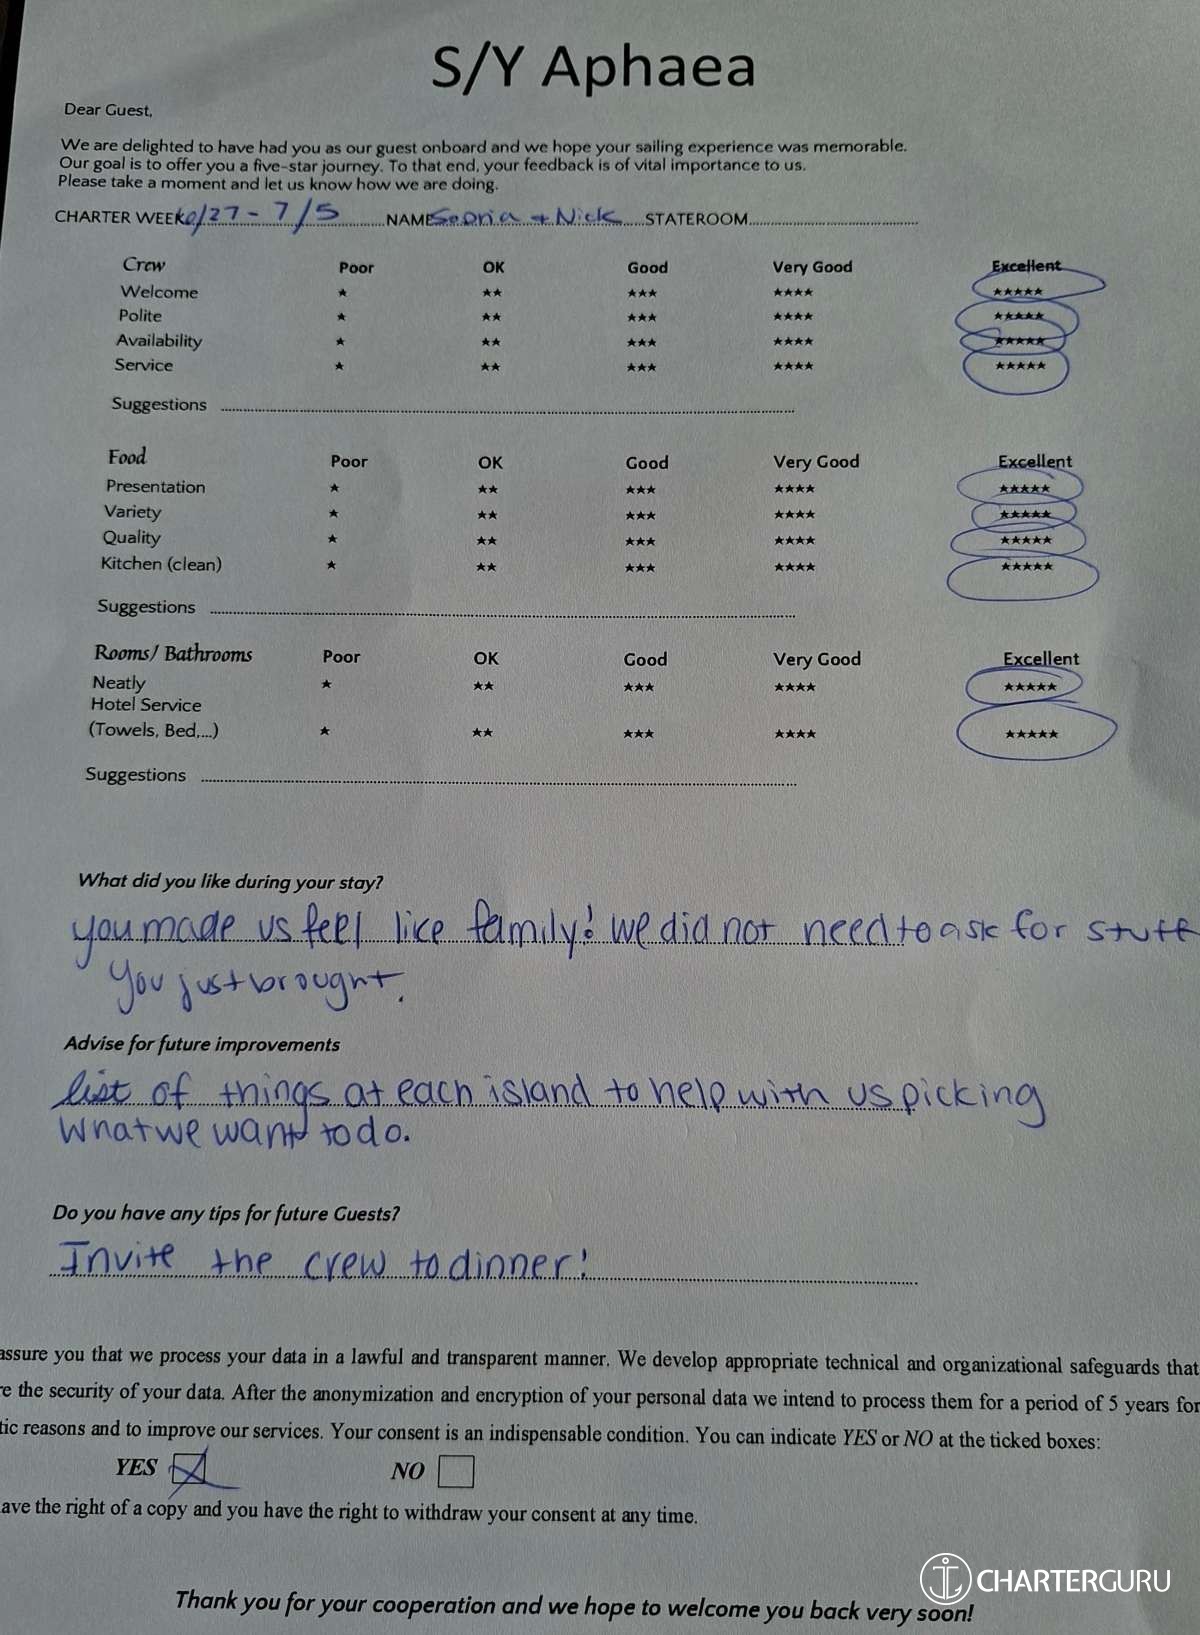 S/Y Aphaea
Dear Guest,
We are delighted to have had you as our guest onboard and we hope your sailing experience was memorable.
Our goal is to offer you a five-star journey. To that end, your feedback is of vital importance to us.
Please take a moment and let us know how we are doing.
CHARTER WEEK 6/27 - 7/5 NAME + Nick STATEROOM
Crew Poor OK Good Very Good Excellent
Welcome ★ ★★ ★★★ ★★★★ ★★★★★
Polite ★ ★★ ★★★ ★★★★ ★★★★★
Availability ★ ★★ ★★★ ★★★★ ★★★★★
Service ★ ★★ ★★★ ★★★★ ★★★★★
Suggestions
Food Poor OK Good Very Good Excellent
Presentation ★ ★★ ★★★ ★★★★ ★★★★★
Variety ★ ★★ ★★★ ★★★★ ★★★★★
Quality ★ ★★ ★★★ ★★★★ ★★★★★
Kitchen (clean) ★ ★★ ★★★ ★★★★ ★★★★★
Suggestions
Rooms/ Bathrooms Poor OK Good Very Good Excellent
Neatly ★ ★★ ★★★ ★★★★ ★★★★★
Hotel Service
(Towels, Bed,...) ★ ★★ ★★★ ★★★★ ★★★★★
Suggestions
What did you like during your stay?
you made us feel like family! we did not need to ask for stuff
You just brought.
Advise for future improvements
list of things at each island to help with us picking
what we want to do.
Do you have any tips for future Guests?
Invite the crew to dinner!
assure you that we process your data in a lawful and transparent manner. We develop appropriate technical and organizational safeguards that
re the security of your data. After the anonymization and encryption of your personal data we intend to process them for a period of 5 years for
tic reasons and to improve our services. Your consent is an indispensable condition. You can indicate YES or NO at the ticked boxes:
YES NO
ave the right of a copy and you have the right to withdraw your consent at any time.
CHARTERGURU
Thank you for your cooperation and we hope to welcome you back very soon!